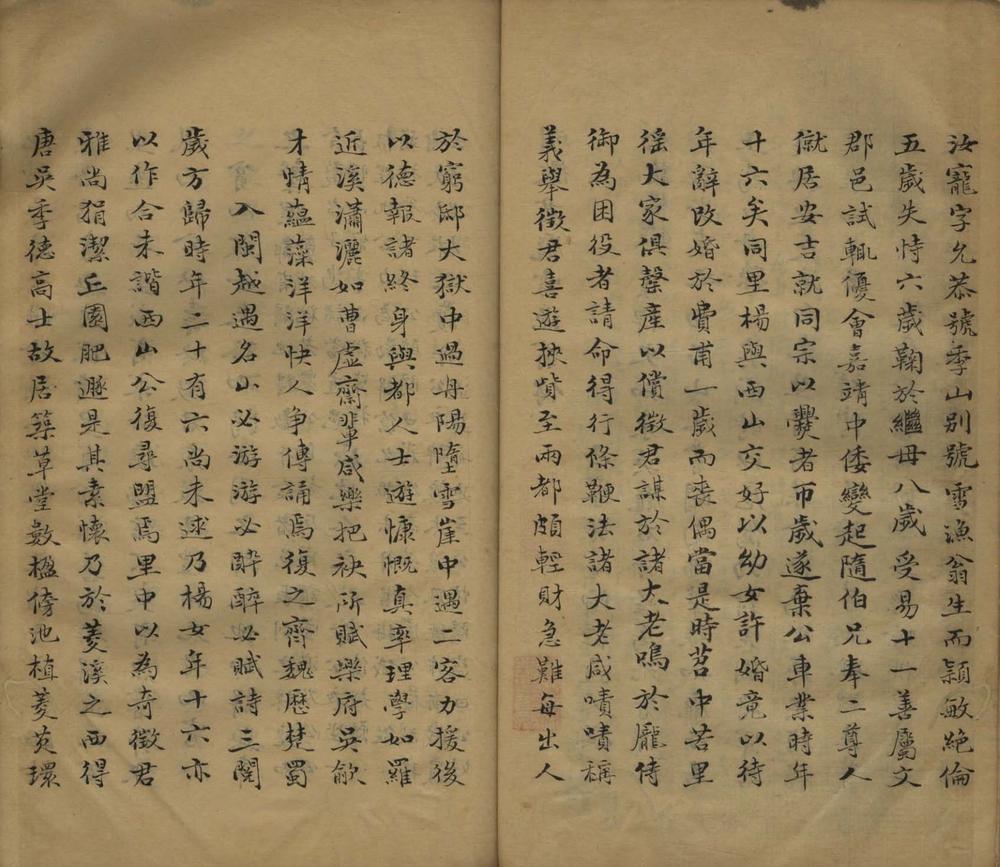 汝寵字允恭號季山別號雪漁翁生而穎敏絕倫
五歲失恃六歲鞠於繼母八歲受易十一善屬文
郡邑試輒優會嘉靖中倭變起隨伯兄奉二尊人
僦居安吉就同宗以爨者帀歲遂棄公車業時年
十六矣同里楊與西山交好以幼女許婚竟以待
年辭改婚於費甫一歲而喪偶當是時苕中苦里
徭大家俱罄產以償徵君謀於諸大老鳴於龐侍
御為困役者請命得行條鞭法諸大老咸嘖嘖稱
義舉徵君喜遊挾貲至兩都頗輕財急難每出人
於窮邸大獄中過丹陽墮雪崖中遇二客力援後
以德報諸終身與都人士遊慷慨真率理學如羅
近溪瀟灑如曹虛齋輩咸樂把袂所賦樂府吳歈
才情蘊藻洋洋快人爭傳誦焉復之齊魏歷楚蜀
入閩越遇名山必游游必醉醉必賦詩三閱
歲方歸時年二十有六尚未逑乃楊女年十六亦
以作合未諧西山公復尋盟焉里中以為奇徵君
雅尚狷潔丘園肥遯是其素懷乃於菱溪之西得
唐吳季德高士故居築草堂數楹傍池植菱芡環